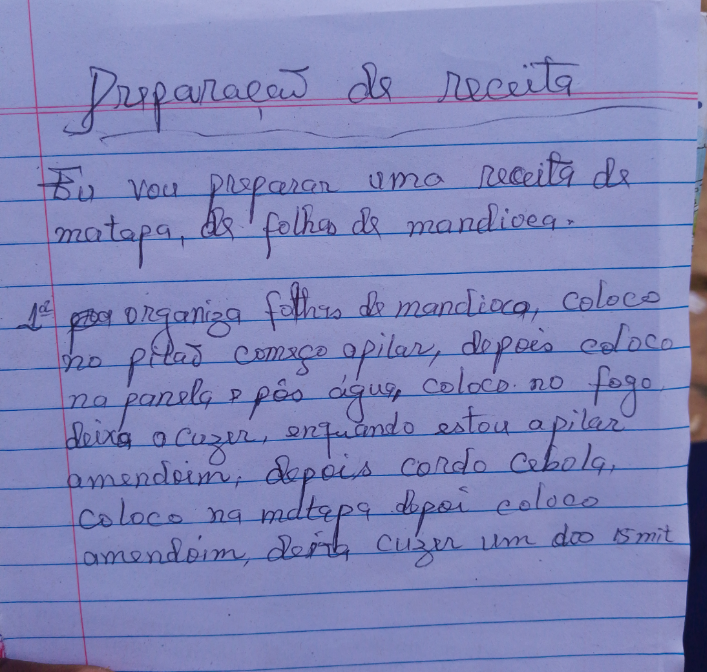 Preparação de receita
Eu vou preparar uma receita de
matapa, de folhas de mandioca.
1º organiza folhas de mandioca, coloco
no pilão começo apilar, depois coloco
na panela, e pôs água, coloco no fogo
deixa a cuzer, enquando estou apilar
amendoim, depois cordo cebola,
coloco na matapa depoi coloco
amendoim, deixa cuzer um doo 15 mit